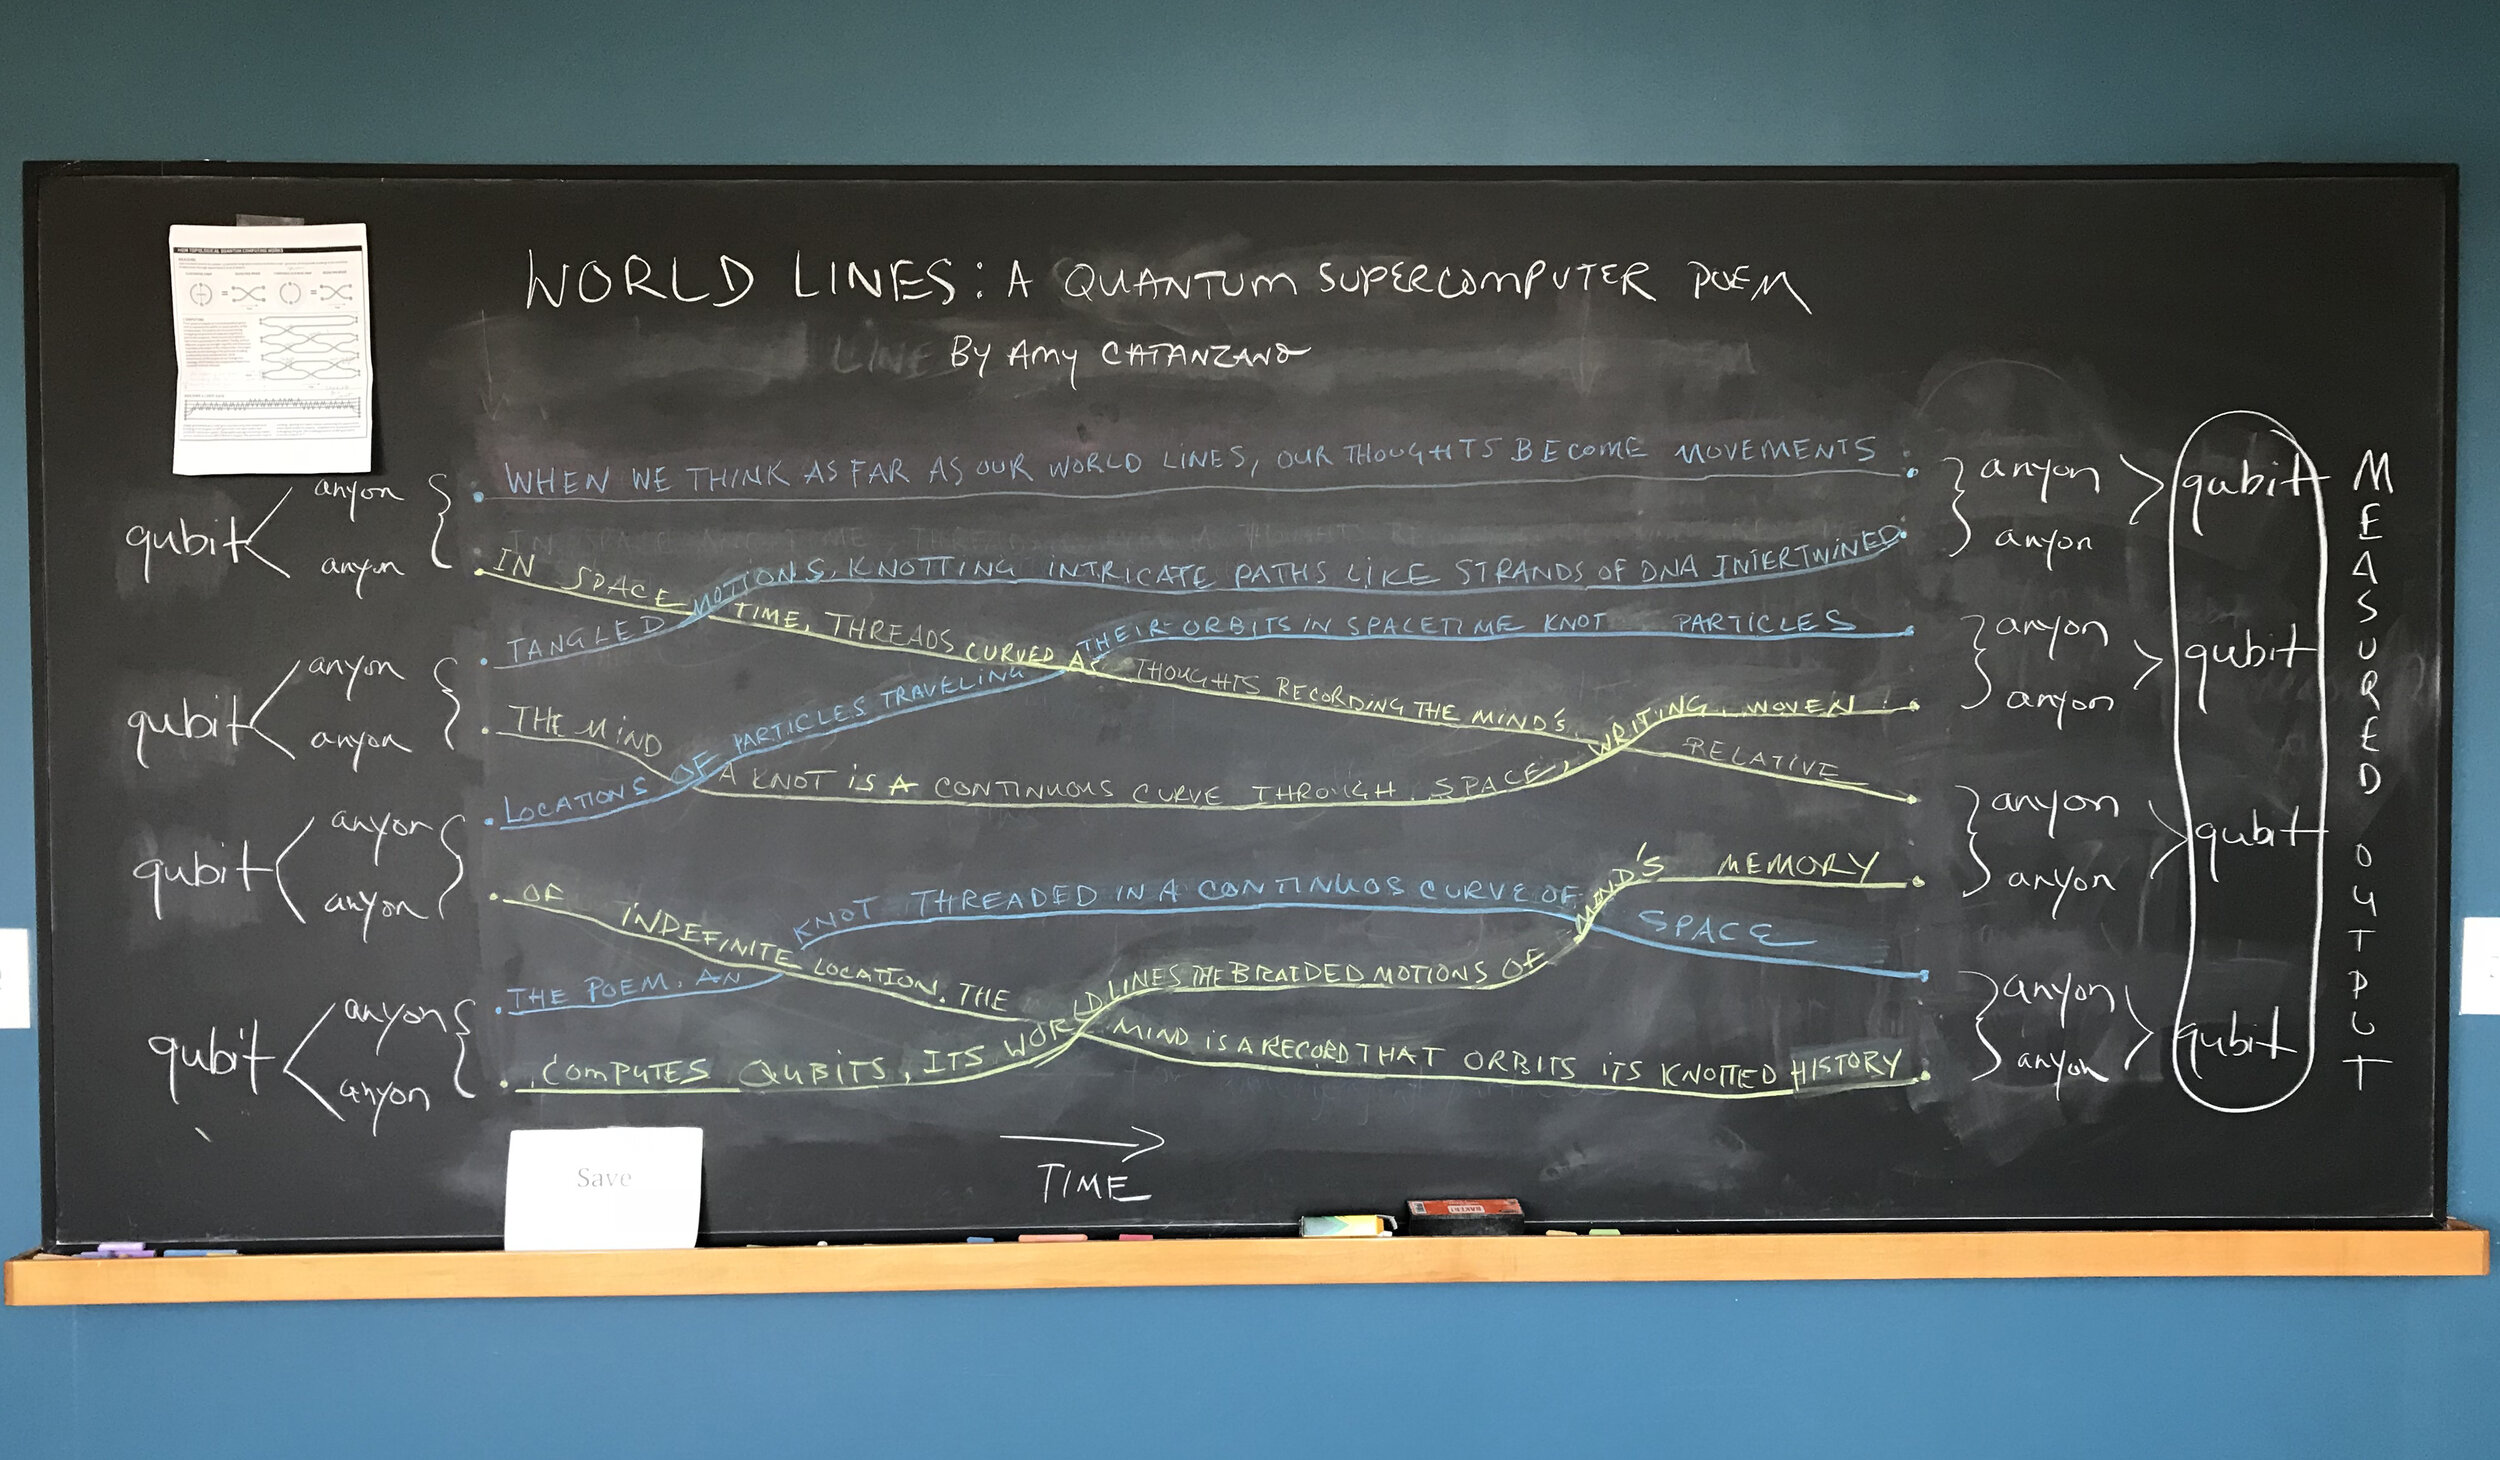 HOW TOPOLOGICAL QUANTUM COMPUTING WORKS
WORLD LINES: A QUANTUM SUPERCOMPUTER POEM
BY AMY CATANZANO
qubit
anyon
anyon
qubit
anyon
anyon
qubit
anyon
anyon
qubit
anyon
anyon
WHEN WE THINK AS FAR AS OUR WORLD LINES, OUR THOUGHTS BECOME MOVEMENTS
IN SPACE TIME, THREADS CURVED AS THOUGHTS RECORDING THE MIND'S, RELATIVE
TANGLED MOTIONS, KNOTTING INTRICATE PATHS LIKE STRANDS OF DNA INTERTWINED
THE MIND A KNOT IS A CONTINUOUS CURVE THROUGH SPACE, WRITING, WOVEN
LOCATIONS OF PARTICLES TRAVELING THEIR ORBITS IN SPACETIME KNOT PARTICLES
OF INDEFINITE LOCATION. THE MIND IS A RECORD THAT ORBITS ITS KNOTTED HISTORY
THE POEM, AN KNOT THREADED IN A CONTINUOS CURVE OF SPACE
COMPUTES QUBITS, ITS WORLDLINES THE BRAIDED MOTIONS OF MIND'S MEMORY
anyon
anyon
qubit
anyon
anyon
qubit
anyon
anyon
qubit
anyon
anyon
qubit
MEASURED OUTPUT
TIME
Save